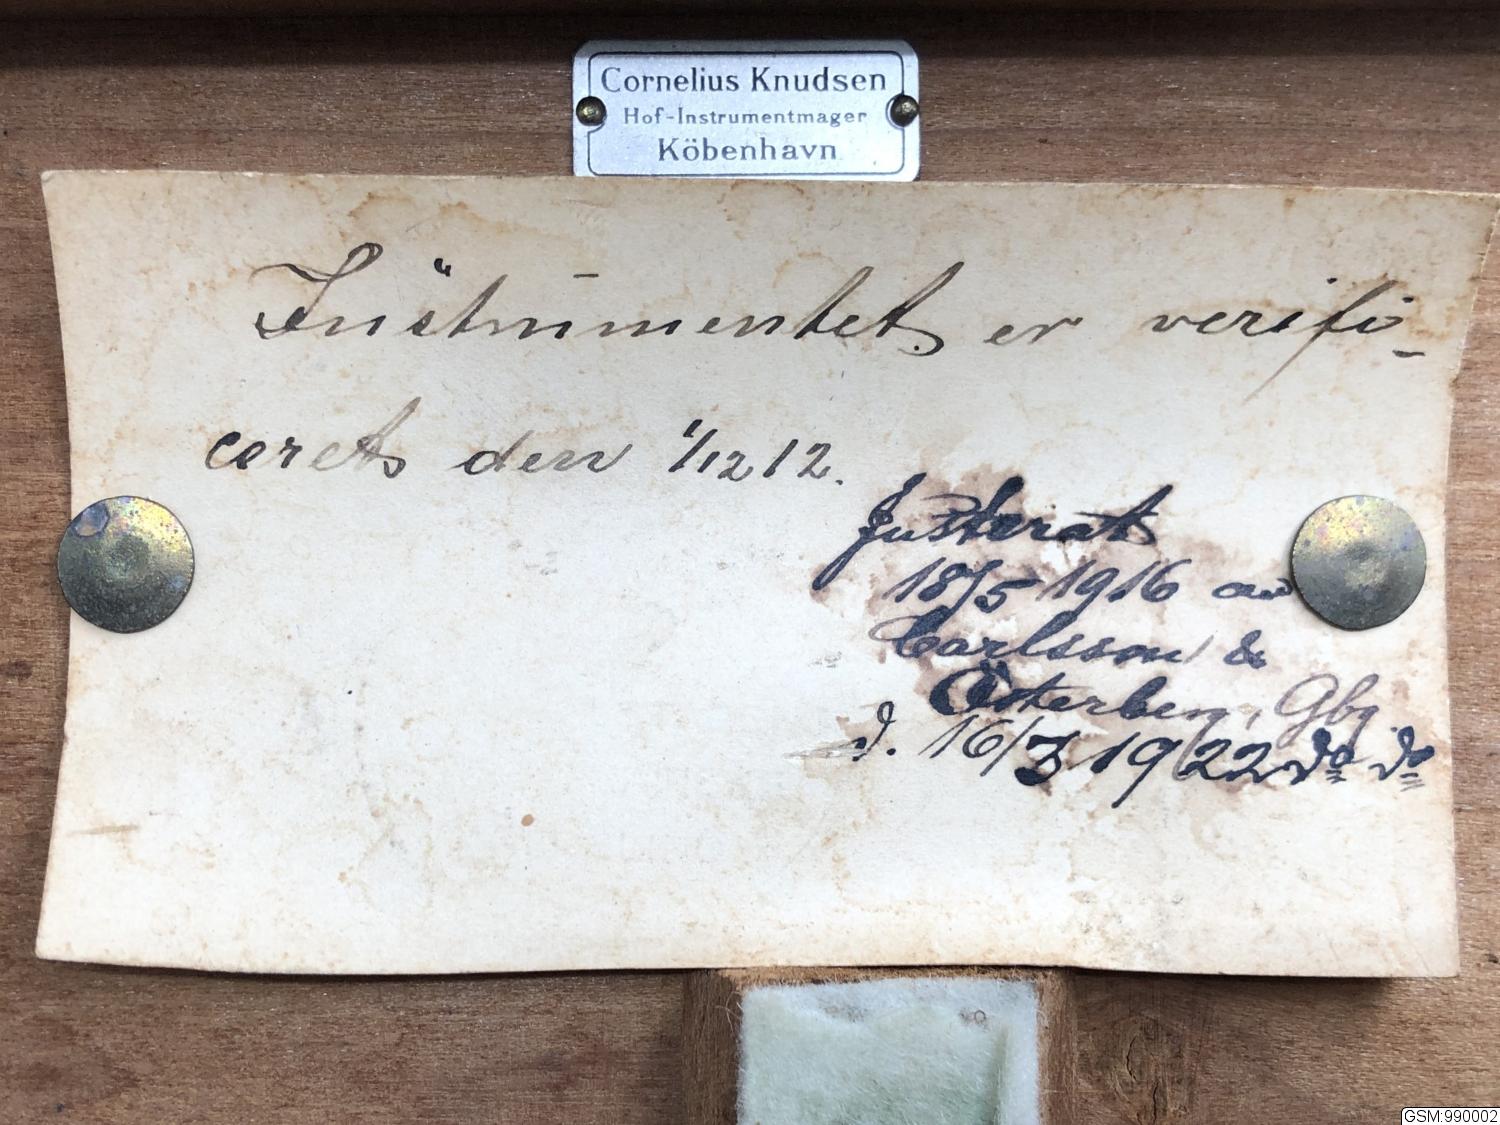 Cornelius Knudsen
Hof-Instrumentmager
Köbenhavn
Instrumentet er verifi-
ceret den 1/12 12.
Justerat
18/5 1916 av
Carlsson &
Österberg, Gbg.
d. 16/3 1922 do do
GSM:990002